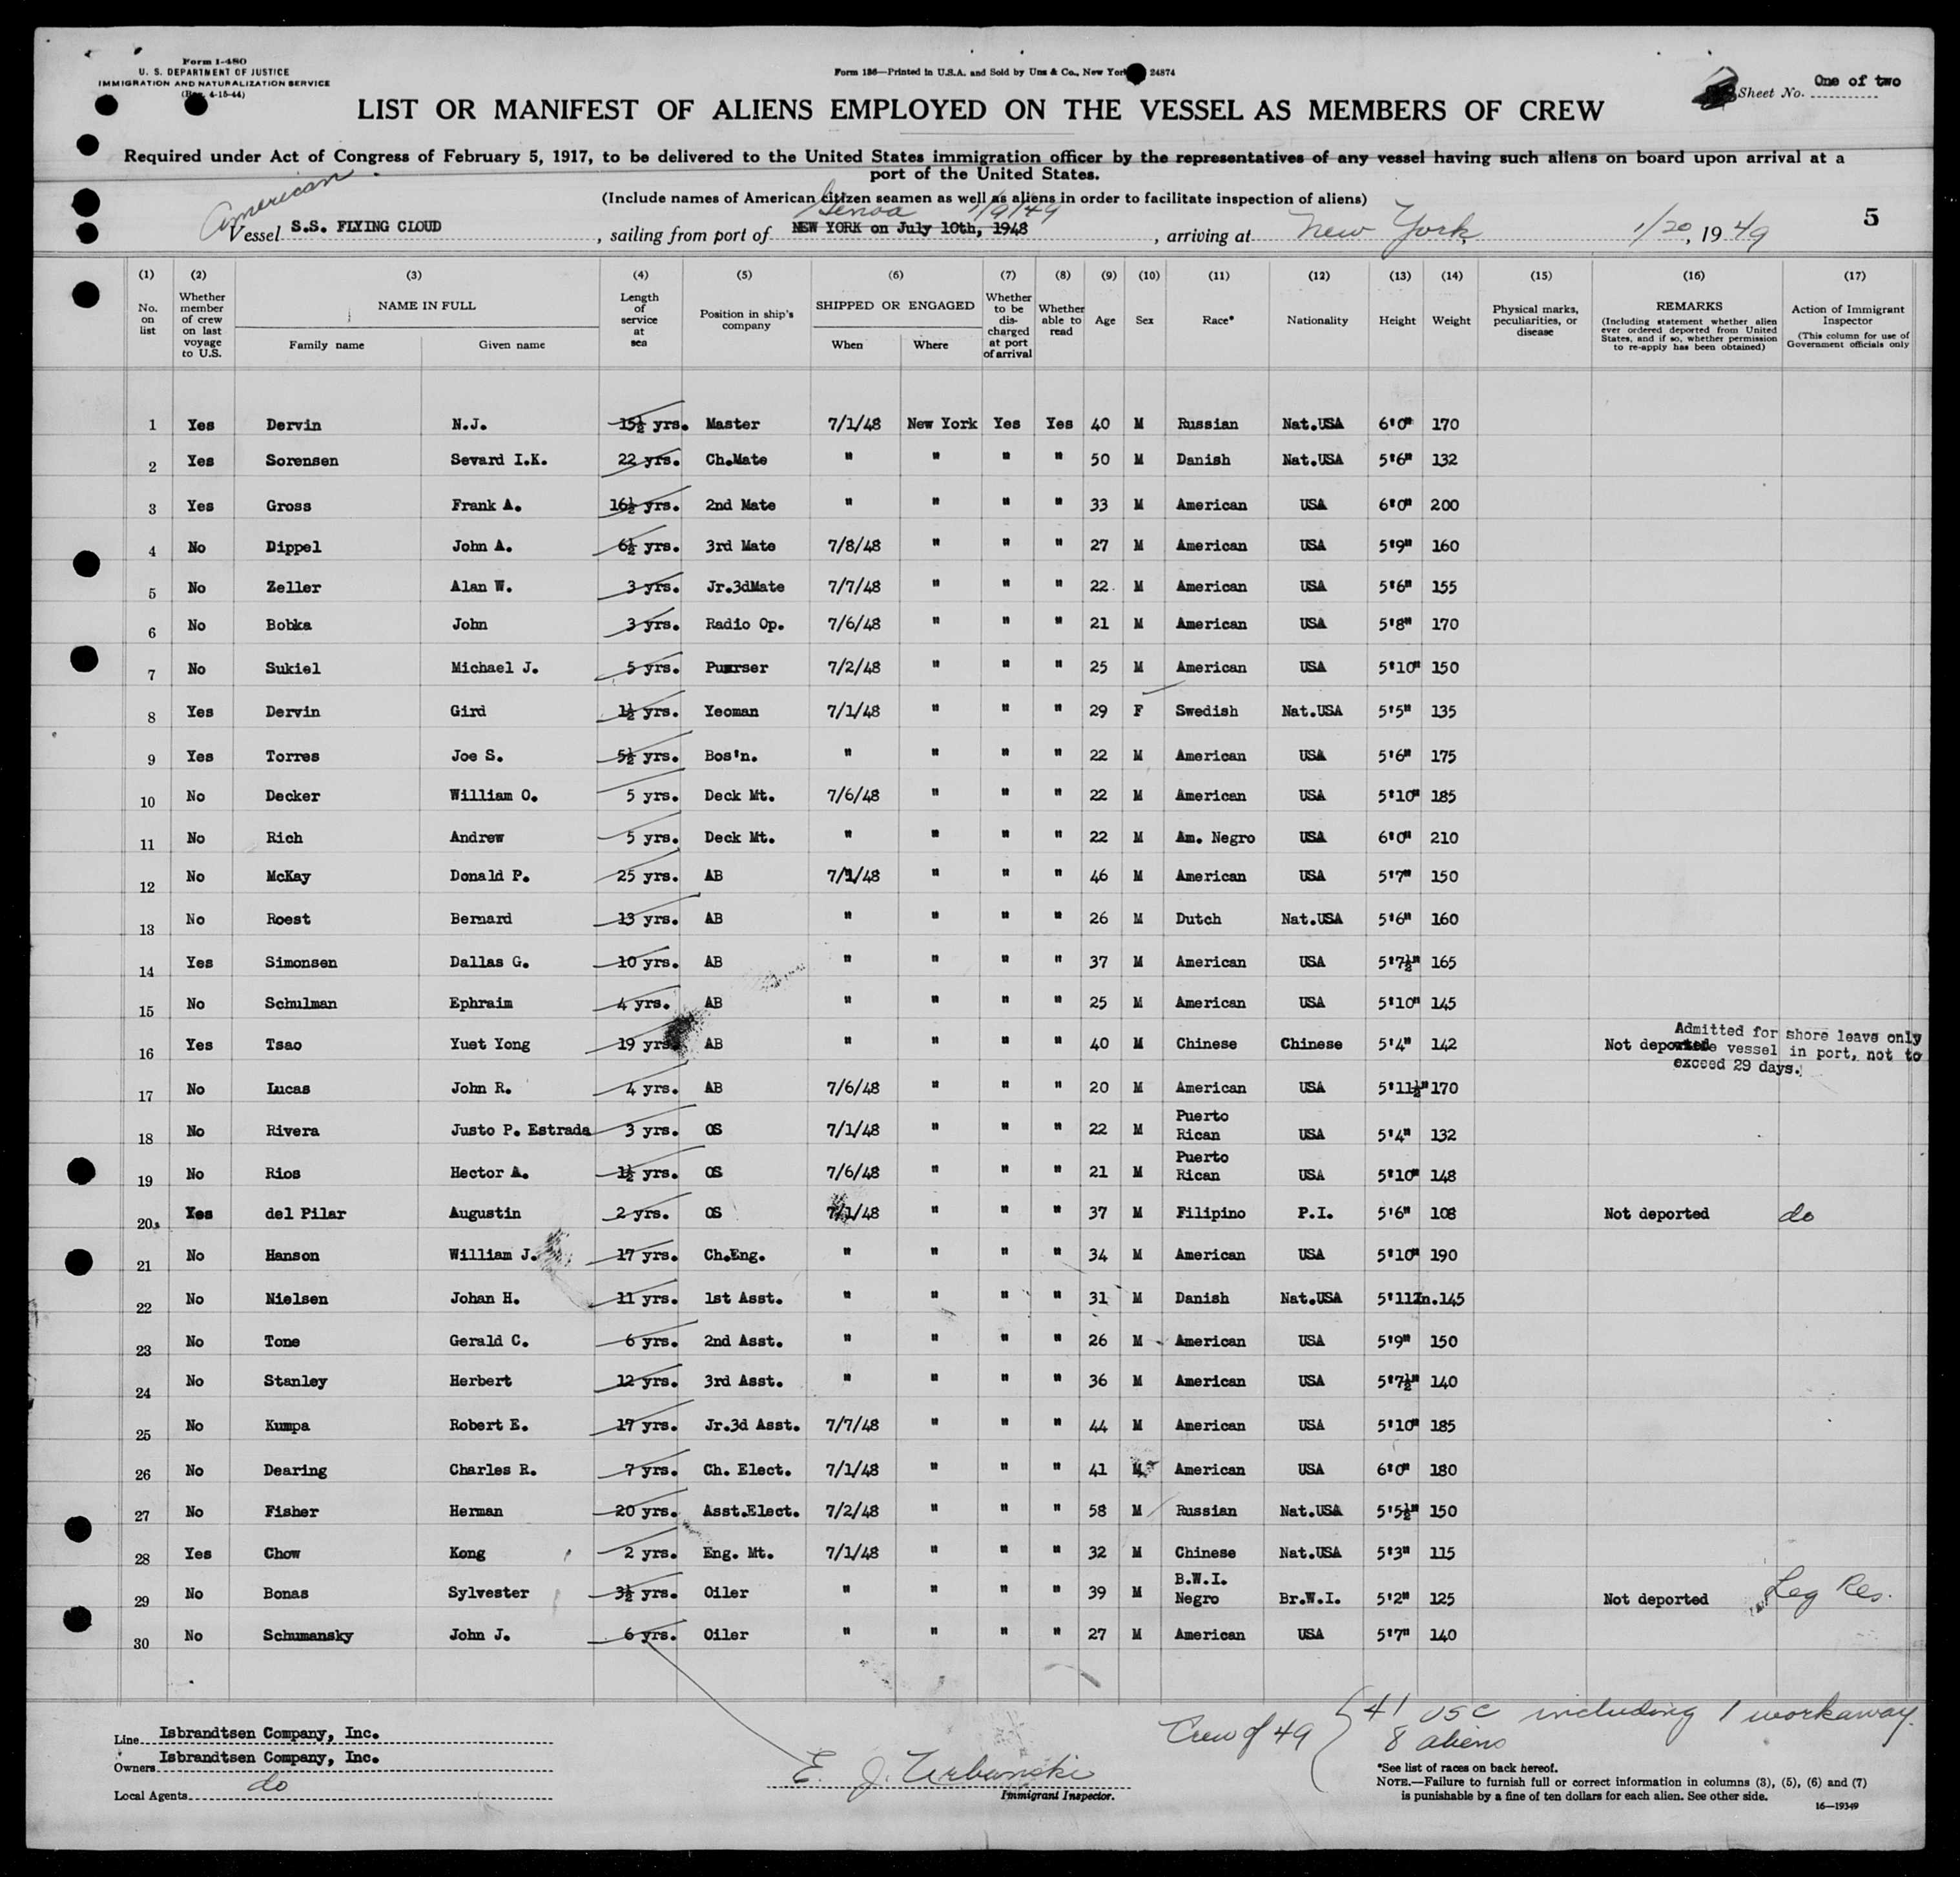 Form I-480
U. S. DEPARTMENT OF JUSTICE
IMMIGRATION AND NATURALIZATION SERVICE
(Rev. 4-15-44)
Form 186—Printed in U.S.A. and Sold by Unz & Co., New York 24874
Sheet No. One of two
LIST OR MANIFEST OF ALIENS EMPLOYED ON THE VESSEL AS MEMBERS OF CREW
Required under Act of Congress of February 5, 1917, to be delivered to the United States immigration officer by the representatives of any vessel having such aliens on board upon arrival at a
port of the United States.
(Include names of American citizen seamen as well as aliens in order to facilitate inspection of aliens)
American
Genoa 1/9/49
Vessel S.S. FLYING CLOUD, sailing from port of NEW YORK on July 10th, 1948, arriving at New York, 1/20, 19 49
5
(1) (2) (3) (4) (5) (6) (7) (8) (9) (10) (11) (12) (13) (14) (15) (16) (17)
No. on list | Whether member of crew on last voyage to U.S. | NAME IN FULL Family name Given name | Length of service at sea | Position in ship's company | SHIPPED OR ENGAGED When Where | Whether to be discharged at port of arrival | Whether able to read | Age | Sex | Race* | Nationality | Height | Weight | Physical marks, peculiarities, or disease | REMARKS (Including statement whether alien ever ordered deported from United States, and if so, whether permission to re-apply has been obtained) | Action of Immigrant Inspector (This column for use of Government officials only
1 Yes Dervin N.J. 15½ yrs. Master 7/1/48 New York Yes Yes 40 M Russian Nat.USA 6'0" 170
2 Yes Sorensen Sevard I.K. 22 yrs. Ch.Mate " " " " 50 M Danish Nat.USA 5'6" 132
3 Yes Gross Frank A. 16½ yrs. 2nd Mate " " " " 33 M American USA 6'0" 200
4 No Dippel John A. 6½ yrs. 3rd Mate 7/8/48 " " " 27 M American USA 5'9" 160
5 No Zeller Alan W. 3 yrs. Jr.3dMate 7/7/48 " " " 22 M American USA 5'6" 155
6 No Bobka John 3 yrs. Radio Op. 7/6/48 " " " 21 M American USA 5'8" 170
7 No Sukiel Michael J. 5 yrs. Purser 7/2/48 " " " 25 M American USA 5'10" 150
8 Yes Dervin Gird 1½ yrs. Yeoman 7/1/48 " " " 29 F Swedish Nat.USA 5'5" 135
9 Yes Torres Joe S. 5½ yrs. Bos'n. " " " " 22 M American USA 5'6" 175
10 No Decker William O. 5 yrs. Deck Mt. 7/6/48 " " " 22 M American USA 5'10" 185
11 No Rich Andrew 5 yrs. Deck Mt. " " " " 22 M Am. Negro USA 6'0" 210
12 No McKay Donald P. 25 yrs. AB 7/1/48 " " " 46 M American USA 5'7" 150
13 No Roest Bernard 13 yrs. AB " " " " 26 M Dutch Nat.USA 5'6" 160
14 Yes Simonsen Dallas G. 10 yrs. AB " " " " 37 M American USA 5'7½" 165
15 No Schulman Ephraim 4 yrs. AB " " " " 25 M American USA 5'10" 145
16 Yes Tsao Yuet Yong 19 yrs AB " " " " 40 M Chinese Chinese 5'4" 142 Not deported
Admitted for shore leave only
vessel in port, not to
exceed 29 days.
17 No Lucas John R. 4 yrs. AB 7/6/48 " " " 20 M American USA 5'11½" 170
18 No Rivera Justo P. Estrada 3 yrs. OS 7/1/48 " " " 22 M Puerto Rican USA 5'4" 132
19 No Rios Hector A. 1½ yrs. OS 7/6/48 " " " 21 M Puerto Rican USA 5'10" 148
20. Yes del Pilar Augustin 2 yrs. OS 7/1/48 " " " 37 M Filipino P.I. 5'6" 108 Not deported do
21 No Hanson William J. 17 yrs. Ch.Eng. " " " " 34 M American USA 5'10" 190
22 No Nielsen Johan H. 11 yrs. 1st Asst. " " " " 31 M Danish Nat.USA 5'11in. 145
23 No Tone Gerald C. 6 yrs. 2nd Asst. " " " " 26 M American USA 5'9" 150
24 No Stanley Herbert 12 yrs. 3rd Asst. " " " " 36 M American USA 5'7½" 140
25 No Kumpa Robert E. 17 yrs. Jr.3d Asst. 7/7/48 " " " 44 M American USA 5'10" 185
26 No Dearing Charles R. 7 yrs. Ch. Elect. 7/1/48 " " " 41 M American USA 6'0" 180
27 No Fisher Herman 20 yrs. Asst.Elect. 7/2/48 " " " 58 M Russian Nat.USA 5'5½" 150
28 Yes Chow Kong 2 yrs. Eng. Mt. 7/1/48 " " " 32 M Chinese Nat.USA 5'3" 115
29 No Bonas Sylvester 3½ yrs. Oiler " " " " 39 M B.W.I. Negro Br.W.I. 5'2" 125 Not deported Leg Res.
30 No Schumansky John J. 6 yrs. Oiler " " " " 27 M American USA 5'7" 140
Line Isbrandtsen Company, Inc.
Owners Isbrandtsen Company, Inc.
Local Agents do
E. J. Urbanski
Immigrant Inspector.
Crew of 49 { 41 USC including 1 workaway.
8 aliens
*See list of races on back hereof.
NOTE.—Failure to furnish full or correct information in columns (3), (5), (6) and (7)
is punishable by a fine of ten dollars for each alien. See other side.
16—19349